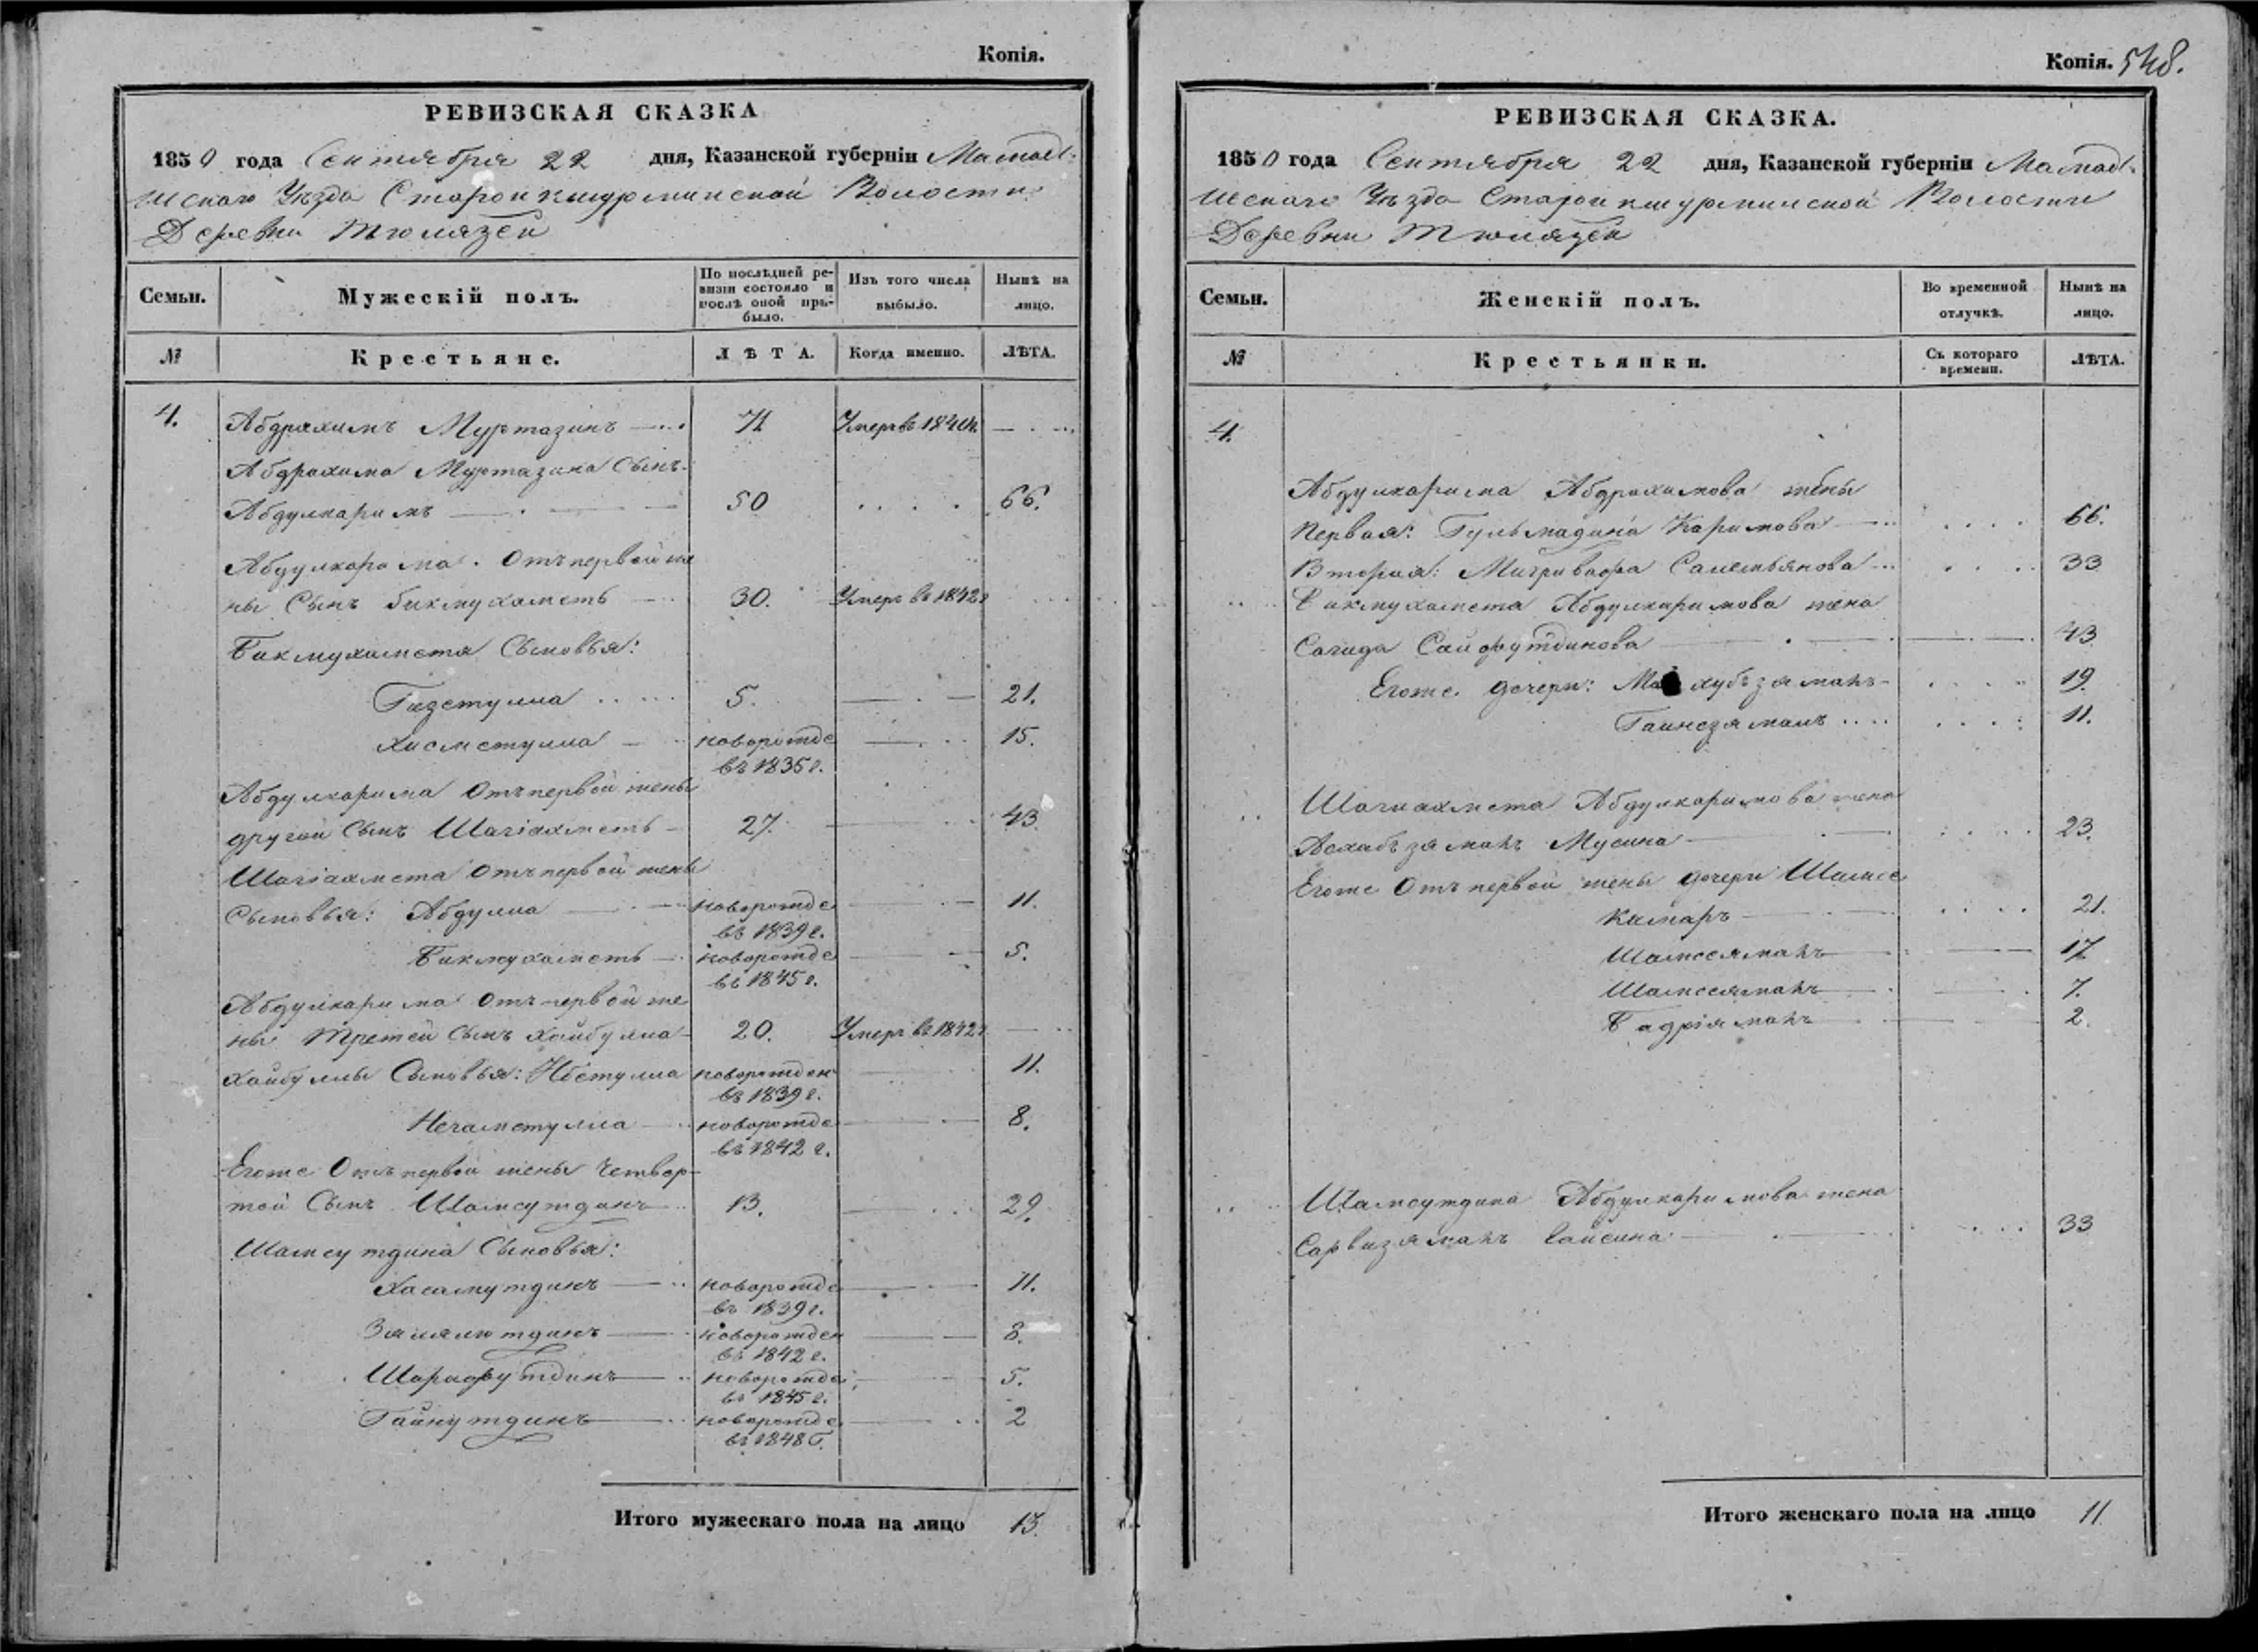 Копія.
РЕВИЗСКАЯ СКАЗКА
1850 года Сентября 22 дня, Казанской губерніи Мамад-
ышскаго Уѣзда Старой кшурминской Волости
Деревни Тюлязей
Семьи.
Мужескій полъ.
По послѣдней ре-
визіи состояло и
послѣ оной при-
было.
Изъ того числа
выбыло.
Нынѣ на
лицо.
№
Крестьяне.
ЛѢТА.
Когда именно.
ЛѢТА.
4. Абдрахимъ Муртазинъ 71 Умеръ въ
Абдрахима Муртазина Сынъ
Абдулкаримъ 50 66.
Абдулкарима. Отъ первой же
ны Сынъ бикмухаметъ 30. Умеръ въ 1842 г
Бикмухамета Сыновья:
Гизетулла 5. 21.
хисметулла новорожде 15.
въ 1835 г.
Абдулкарима Отъ первой жены
другой Сынъ Шагіахметъ 27. 43.
Шагіахмета Отъ первой жены
Сыновья: Абдулла новорожде 11.
въ 1839 г.
Бикмухаметъ новорожде 5.
въ 1845 г.
Абдулкарима Отъ первой же
ны третей Сынъ хайбулла 20. Умеръ въ 1842 г
хайбуллы Сыновья: Ибетулла новорожден 11.
въ 1839 г.
Негаметулла новорожде 8.
въ 1842 г.
Егоже Отъ первой жены Четвер-
той Сынъ Шамсутдинъ 13. 29.
Шамсутдина Сыновья:
Хасамутдинъ новорожде 11.
въ 1839 г.
Зялялютдинъ новорожден 8.
въ 1842 г.
Шарифутдинъ новорожде 5.
въ 1845 г.
Гайнутдинъ новорожде 2
въ 1848 г.
Итого мужескаго пола на лицо 13.
Копія. 548.
РЕВИЗСКАЯ СКАЗКА.
1850 года Сентября 22 дня, Казанской губерніи Мамад-
ышскаго Уѣзда Старой кшурминской Волости
Деревни Тюлязей
Семьи.
Женскій полъ.
Во временной
отлучкѣ.
Нынѣ на
лицо.
№
Крестьянки.
Съ котораго
времени.
ЛѢТА.
4.
Абдулкарима Абдрахимова жены
Первая: Гульмадина Каримова 66.
Вторая: Самемьянова 33
Бикмухамета Абдулкаримова жена
Сагида Сайфутдинова 43
Егоже дочери: 19.
Гайнезяманъ 11.
Шагиахмета Абдулкаримова жена
Асхабъзяманъ Мусина 23.
Егоже Отъ первой жены дочери Шамсе
камаръ 21.
Шамсеяманъ 17
Шамсеяманъ 7.
Бадріяманъ 2.
Шамсутдина Абдулкаримова жена
Сарвизяманъ Ваисина 33
Итого женскаго пола на лицо 11.